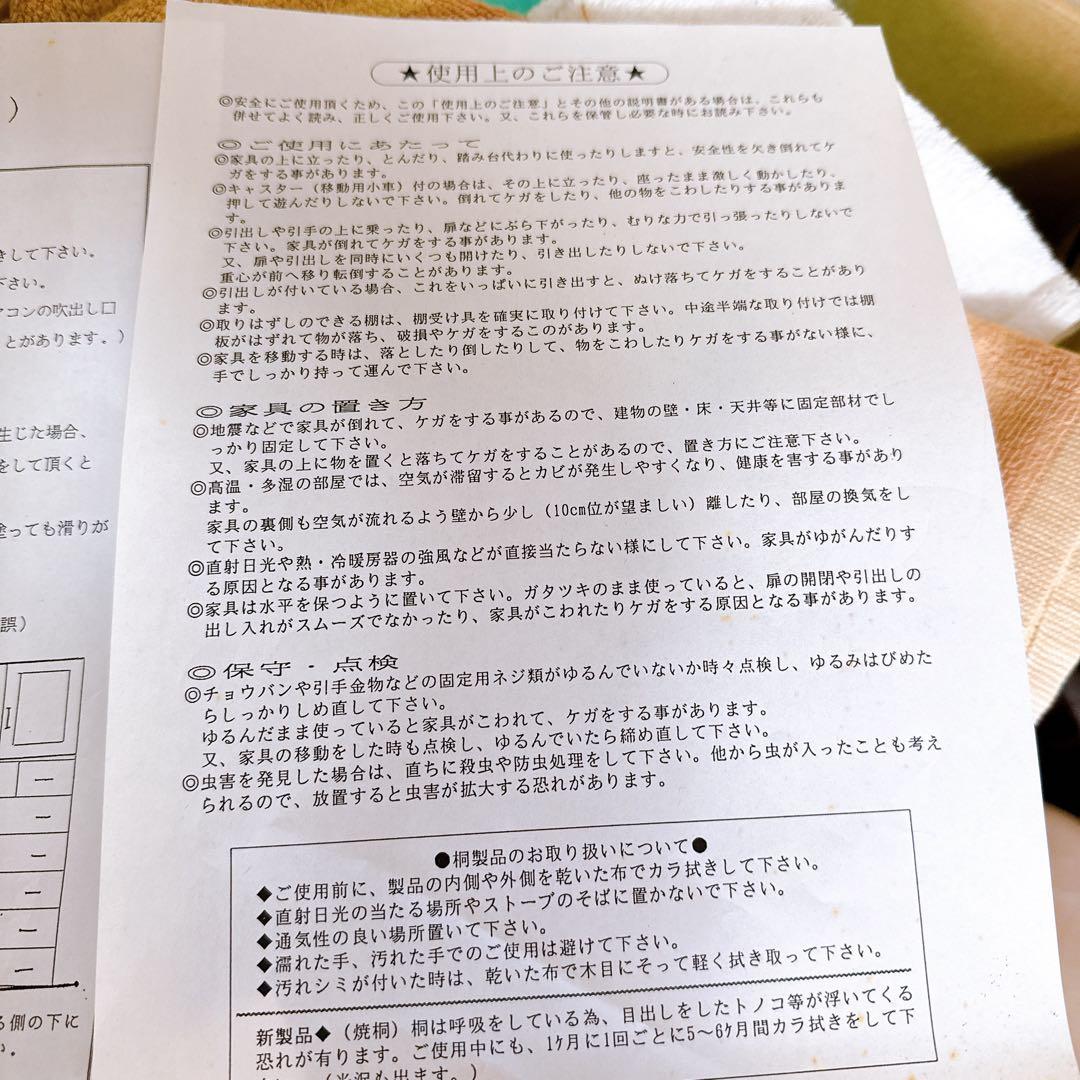 ）
きして下さい。
下さい。
アコンの吹出し口
とがあります。）
生じた場合、
をして頂くと
塗っても滑りが
誤）
る側の下に
い。
★使用上のご注意★
◎安全にご使用頂くため、この「使用上のご注意」とその他の説明書がある場合は、これらも
併せてよく読み、正しくご使用下さい。又、これらを保管し必要な時にお読み下さい。
◎ご使用にあたって
◎家具の上に立ったり、とんだり、踏み台代わりに使ったりしますと、安全性を欠き倒れてケ
ガをする事があります。
◎キャスター（移動用小車）付の場合は、その上に立ったり、座ったまま激しく動かしたり、
押して遊んだりしないで下さい。倒れてケガをしたり、他の物をこわしたりする事がありま
す。
◎引出しや引手の上に乗ったり、扉などにぶら下がったり、むりな力で引っ張ったりしないで
下さい。家具が倒れてケガをする事があります。
又、扉や引出しを同時にいくつも開けたり、引き出したりしないで下さい。
重心が前へ移り転倒することがあります。
◎引出しが付いている場合、これをいっぱいに引き出すと、ぬけ落ちてケガをすることがあり
ます。
◎取りはずしのできる棚は、棚受け具を確実に取り付けて下さい。中途半端な取り付けでは棚
板がはずれて物が落ち、破損やケガをするこのがあります。
◎家具を移動する時は、落としたり倒したりして、物をこわしたりケガをする事がない様に、
手でしっかり持って運んで下さい。
◎家具の置き方
◎地震などで家具が倒れて、ケガをする事があるので、建物の壁・床・天井等に固定部材でし
っかり固定して下さい。
又、家具の上に物を置くと落ちてケガをすることがあるので、置き方にご注意下さい。
◎高温・多湿の部屋では、空気が滞留するとカビが発生しやすくなり、健康を害する事があり
ます。
家具の裏側も空気が流れるよう壁から少し（10cm位が望ましい）離したり、部屋の換気をし
て下さい。
◎直射日光や熱・冷暖房器の強風などが直接当たらない様にして下さい。家具がゆがんだりす
る原因となる事があります。
◎家具は水平を保つように置いて下さい。ガタツキのまま使っていると、扉の開閉や引出しの
出し入れがスムーズでなかったり、家具がこわれたりケガをする原因となる事があります。
◎保守・点検
◎チョウバンや引手金物などの固定用ネジ類がゆるんでいないか時々点検し、ゆるみはびめた
らしっかりしめ直して下さい。
ゆるんだまま使っていると家具がこわれて、ケガをする事があります。
又、家具の移動をした時も点検し、ゆるんでいたら締め直して下さい。
◎虫害を発見した場合は、直ちに殺虫や防虫処理をして下さい。他から虫が入ったことも考え
られるので、放置すると虫害が拡大する恐れがあります。
●桐製品のお取り扱いについて●
◆ご使用前に、製品の内側や外側を乾いた布でカラ拭きして下さい。
◆直射日光の当たる場所やストーブのそばに置かないで下さい。
◆通気性の良い場所置いて下さい。
◆濡れた手、汚れた手でのご使用は避けて下さい。
◆汚れシミが付いた時は、乾いた布で木目にそって軽く拭き取って下さい。
新製品◆（焼桐）桐は呼吸をしている為、目出しをしたトノコ等が浮いてくる
恐れが有ります。ご使用中にも、1ヶ月に1回ごとに5〜6ヶ月間カラ拭きをして下
さい。（光沢も出ます。）